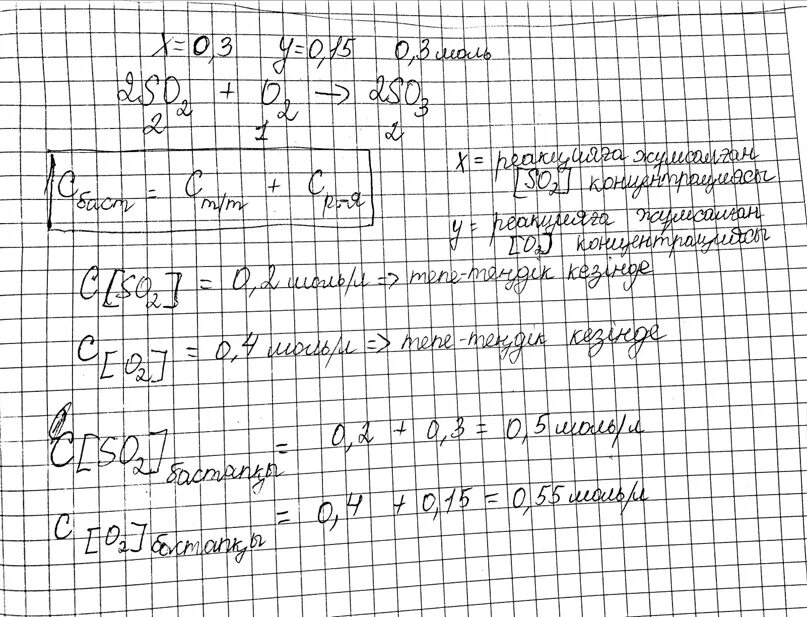 x=0,3 y=0,15 0,3 моль
2SO₂ + O₂ → 2SO₃
2 1 2
C баст = C т/т + C р-я
x = реакцияға жұмсалған
[SO₂] концентрациясы
y = реакцияға жұмсалған
[O₂] концентрациясы
C[SO₂] = 0,2 моль/л => тепе-теңдік кезінде
C[O₂] = 0,4 моль/л => тепе-теңдік кезінде
C[SO₂] бастапқы = 0,2 + 0,3 = 0,5 моль/л
C[O₂] бастапқы = 0,4 + 0,15 = 0,55 моль/л